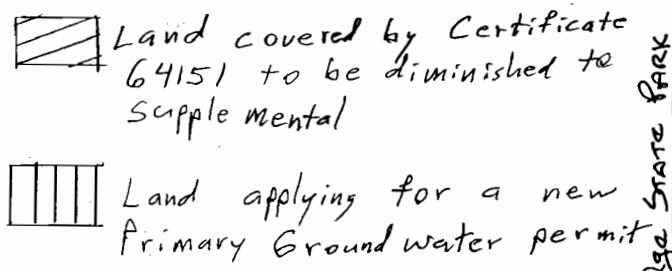 Land covered by Certificate
64151 to be diminished to
Supplemental
Land applying for a new
Primary Ground water permit
STATE PARK